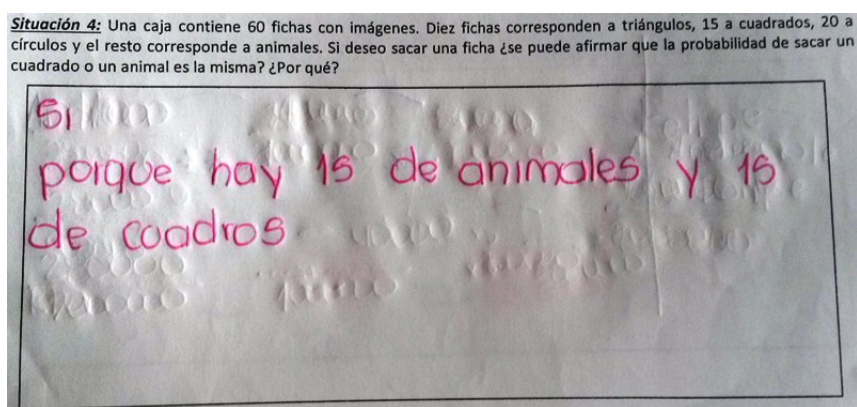 Situación 4: Una caja contiene 60 fichas con imágenes. Diez fichas corresponden a triángulos, 15 a cuadrados, 20 a
círculos y el resto corresponde a animales. Si deseo sacar una ficha ¿se puede afirmar que la probabilidad de sacar un
cuadrado o un animal es la misma? ¿Por qué?
Si
porque hay 15 de animales y 15
de cuadros